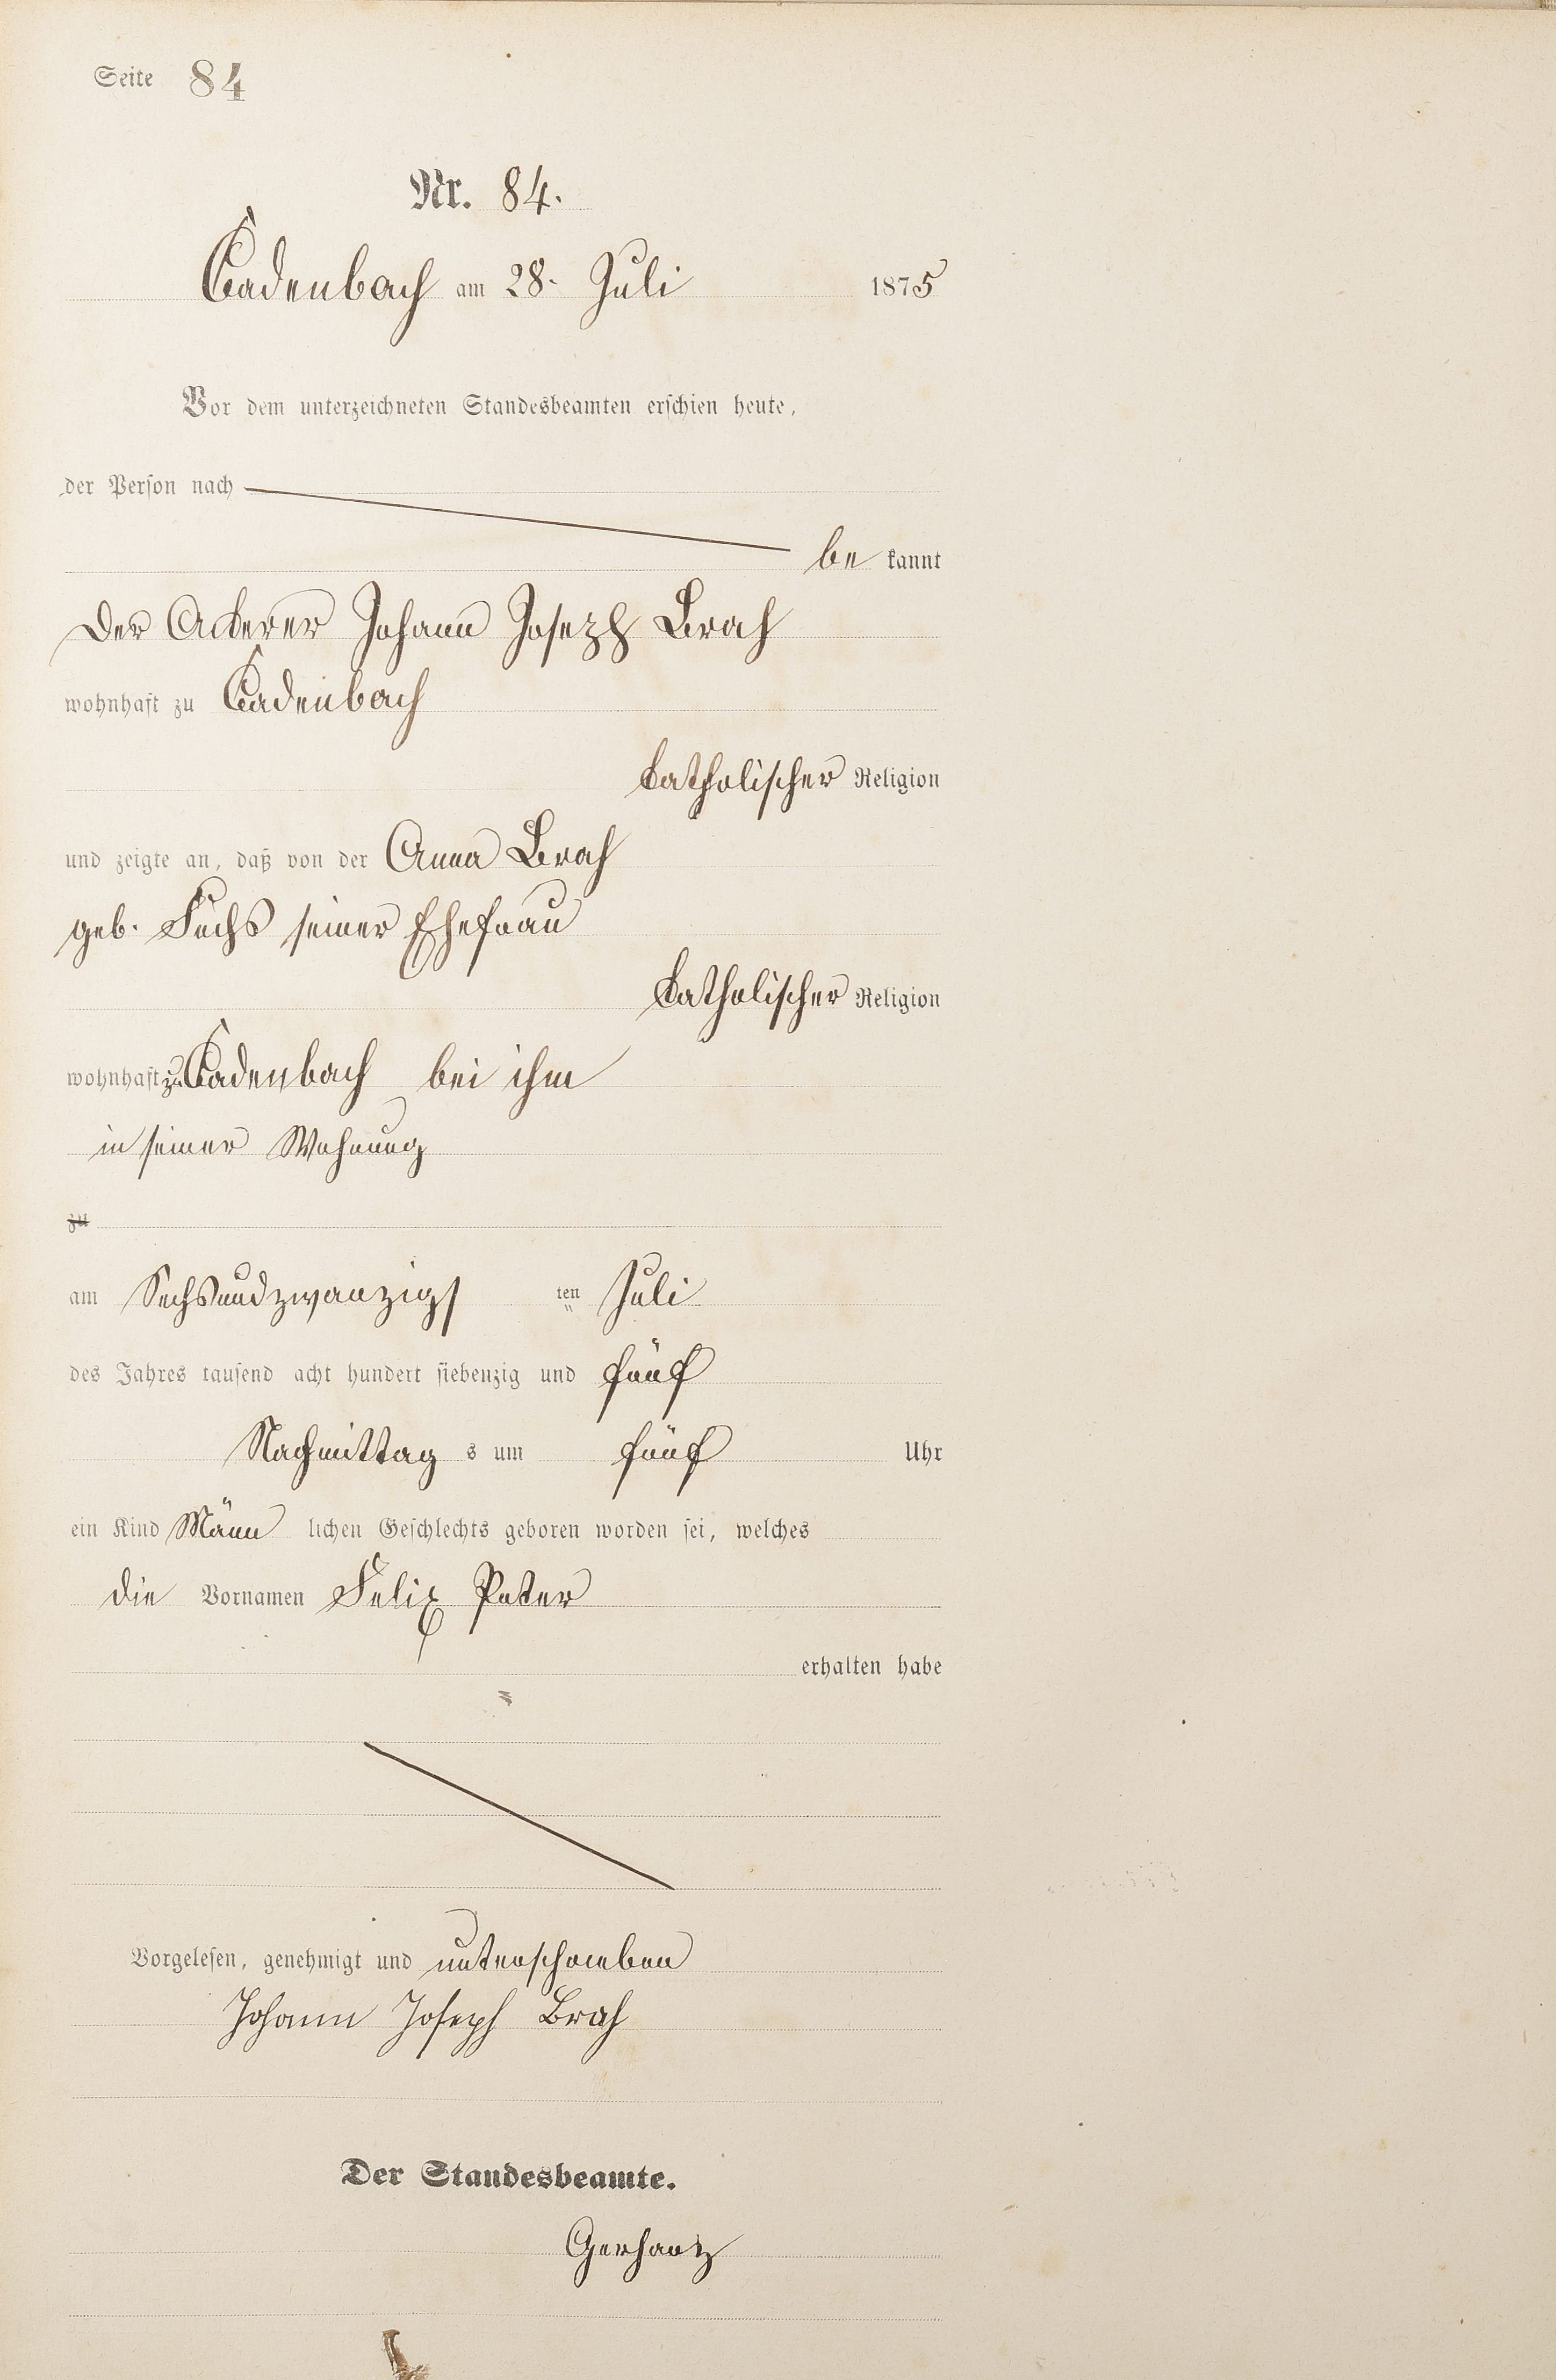 Seite 84
Nr. 84.
Cadenbach am 28. Juli 1875
Vor dem unterzeichneten Standesbeamten erschien heute,
der Person nach
be kannt
der Ackerer Johann Joseph Brah
wohnhaft zu Cadenbach
katholischer Religion
und zeigte an, daß von der Anna Brah
geb. Fuchs seiner Ehefrau
katholischer Religion
wohnhaft zu Cadenbach bei ihm
in seiner Wohnung
zu
am Sechsundzwanzigs ten Juli
des Jahres tausend acht hundert siebenzig und fünf
Nachmittag s um fünf Uhr
ein Kind Männ lichen Geschlechts geboren worden sei, welches
die Vornamen Felix Peter
erhalten habe
Vorgelesen, genehmigt und unterschrieben
Johann Joseph Brah
Der Standesbeamte.
Gerhartz